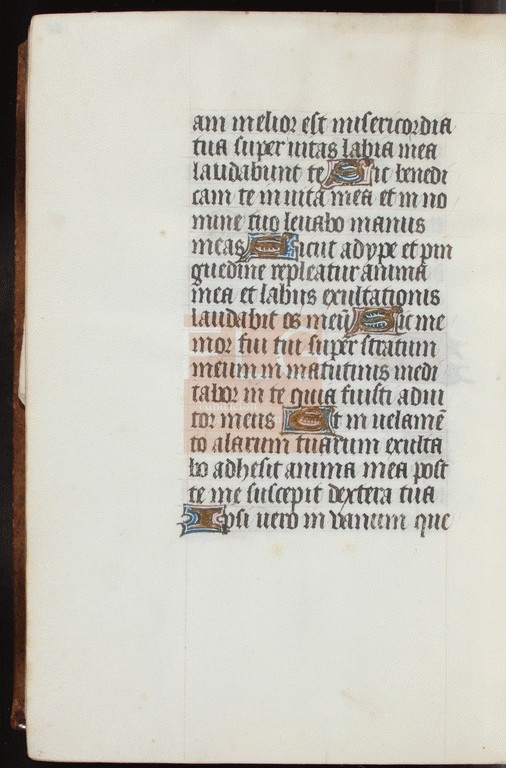 am melior est misericordia
tua super uitas labia mea
laudabunt te Sic benedi
cam te in uita mea et in no
mine tuo leuabo manus
meas Sicut adype et pin
guedine repleatur anima
mea et labiis exultationis
laudabit os meū Sic me
mor fui tui super stratum
meum in matutinis medi
tabor in te quia fuisti adiu
tor meus Et in uelamē
to alarum tuarum exulta
bo adhesit anima mea post
te me suscepit dextera tua
Ipsi uero in vanum que